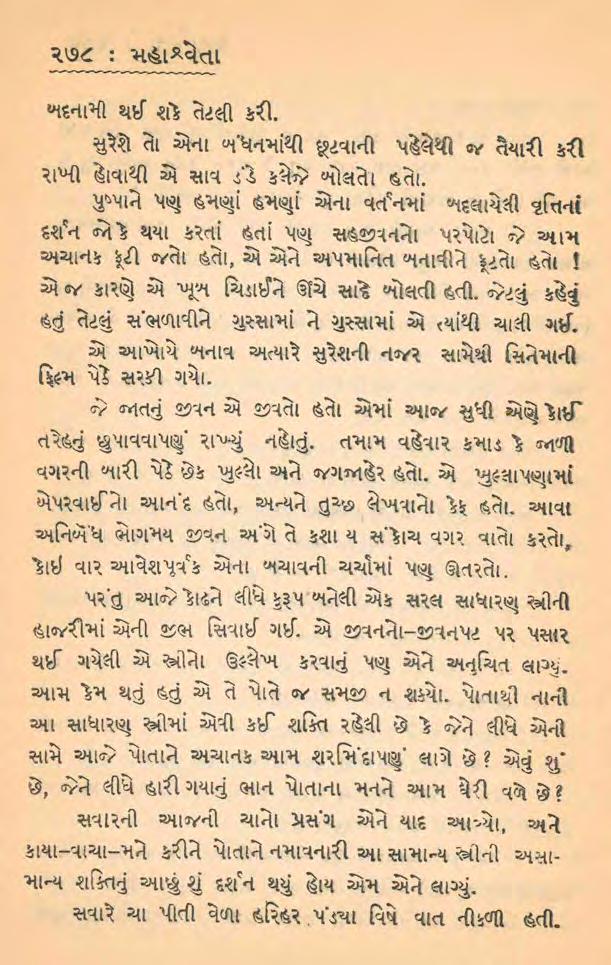 ૨૭૮ : મહાશ્વેતા
બદનામી થઈ શકે તેટલી કરી.
સુરેશે તો એના બંધનમાંથી છૂટવાની પહેલેથી જ તૈયારી કરી
રાખી હોવાથી એ સાવ ઠંડે કલેજે બોલતો હતો.
પુષ્પાને પણ હમણાં હમણાં એના વર્તનમાં બદલાયેલી વૃત્તિનાં
દર્શન જો કે થયા કરતાં હતાં પણ સહજીવનનો પરપોટો જે આમ
અચાનક ફૂટી જતો હતો, એ એને અપમાનિત બનાવીને ફૂટતો હતો !
એ જ કારણે એ ખૂબ ચિડાઈને ઊંચે સાદે બોલતી હતી. જેટલું કહેવું
હતું તેટલું સંભળાવીને ગુસ્સામાં ને ગુસ્સામાં એ ત્યાંથી ચાલી ગઈ.
એ આખોયે બનાવ અત્યારે સુરેશની નજર સામેથી સિનેમાની
ફિલ્મ પેઠે સરકી ગયો.
જે જાતનું જીવન એ જીવતો હતો એમાં આજ સુધી એણે કોઈ
તરેહનું છુપાવવાપણું રાખ્યું નહોતું. તમામ વહેવાર કમાડ કે જાળી
વગરની બારી પેઠે છેક ખુલ્લો અને જગજાહેર હતો. એ ખુલ્લાપણામાં
બેપરવાઈનો આનંદ હતો, અન્યને તુચ્છ લેખવાનો કેફ હતો. આવા
અનિર્બંધ ભોગમય જીવન અંગે તે કશા ય સંકોચ વગર વાતો કરતો,
કોઈ વાર આવેશપૂર્વક એના બચાવની ચર્ચામાં પણ ઊતરતો.
પરંતુ આજે કોઢને લીધે કુરૂપ બનેલી એક સરલ સાધારણ સ્ત્રીની
હાજરીમાં એની જીભ સિવાઈ ગઈ. એ જીવનનો–જીવનપટ પર પસાર
થઈ ગયેલી એ સ્ત્રીનો ઉલ્લેખ કરવાનું પણ એને અનુચિત લાગ્યું.
આમ કેમ થતું હતું એ તે પોતે જ સમજી ન શકયો. પોતાથી નાની
આ સાધારણ સ્ત્રીમાં એવી કઈ શક્તિ રહેલી છે કે જેને લીધે એની
સામે આજે પોતાને અચાનક આમ શરમિંદાપણું લાગે છે ? એવું શું
છે, જેને લીધે હારી ગયાનું ભાન પોતાના મનને આમ ઘેરી વળે છે ?
સવારની આજની ચાનો પ્રસંગ એને યાદ આવ્યો, અને
કાયા–વાચા–મને કરીને પોતાને નમાવનારી આ સામાન્ય સ્ત્રીની અસા-
માન્ય શક્તિનું આછું શું દર્શન થયું હોય એમ એને લાગ્યું.
સવારે ચા પીતી વેળા હરિહર પંડયા વિષે વાત નીકળી હતી.